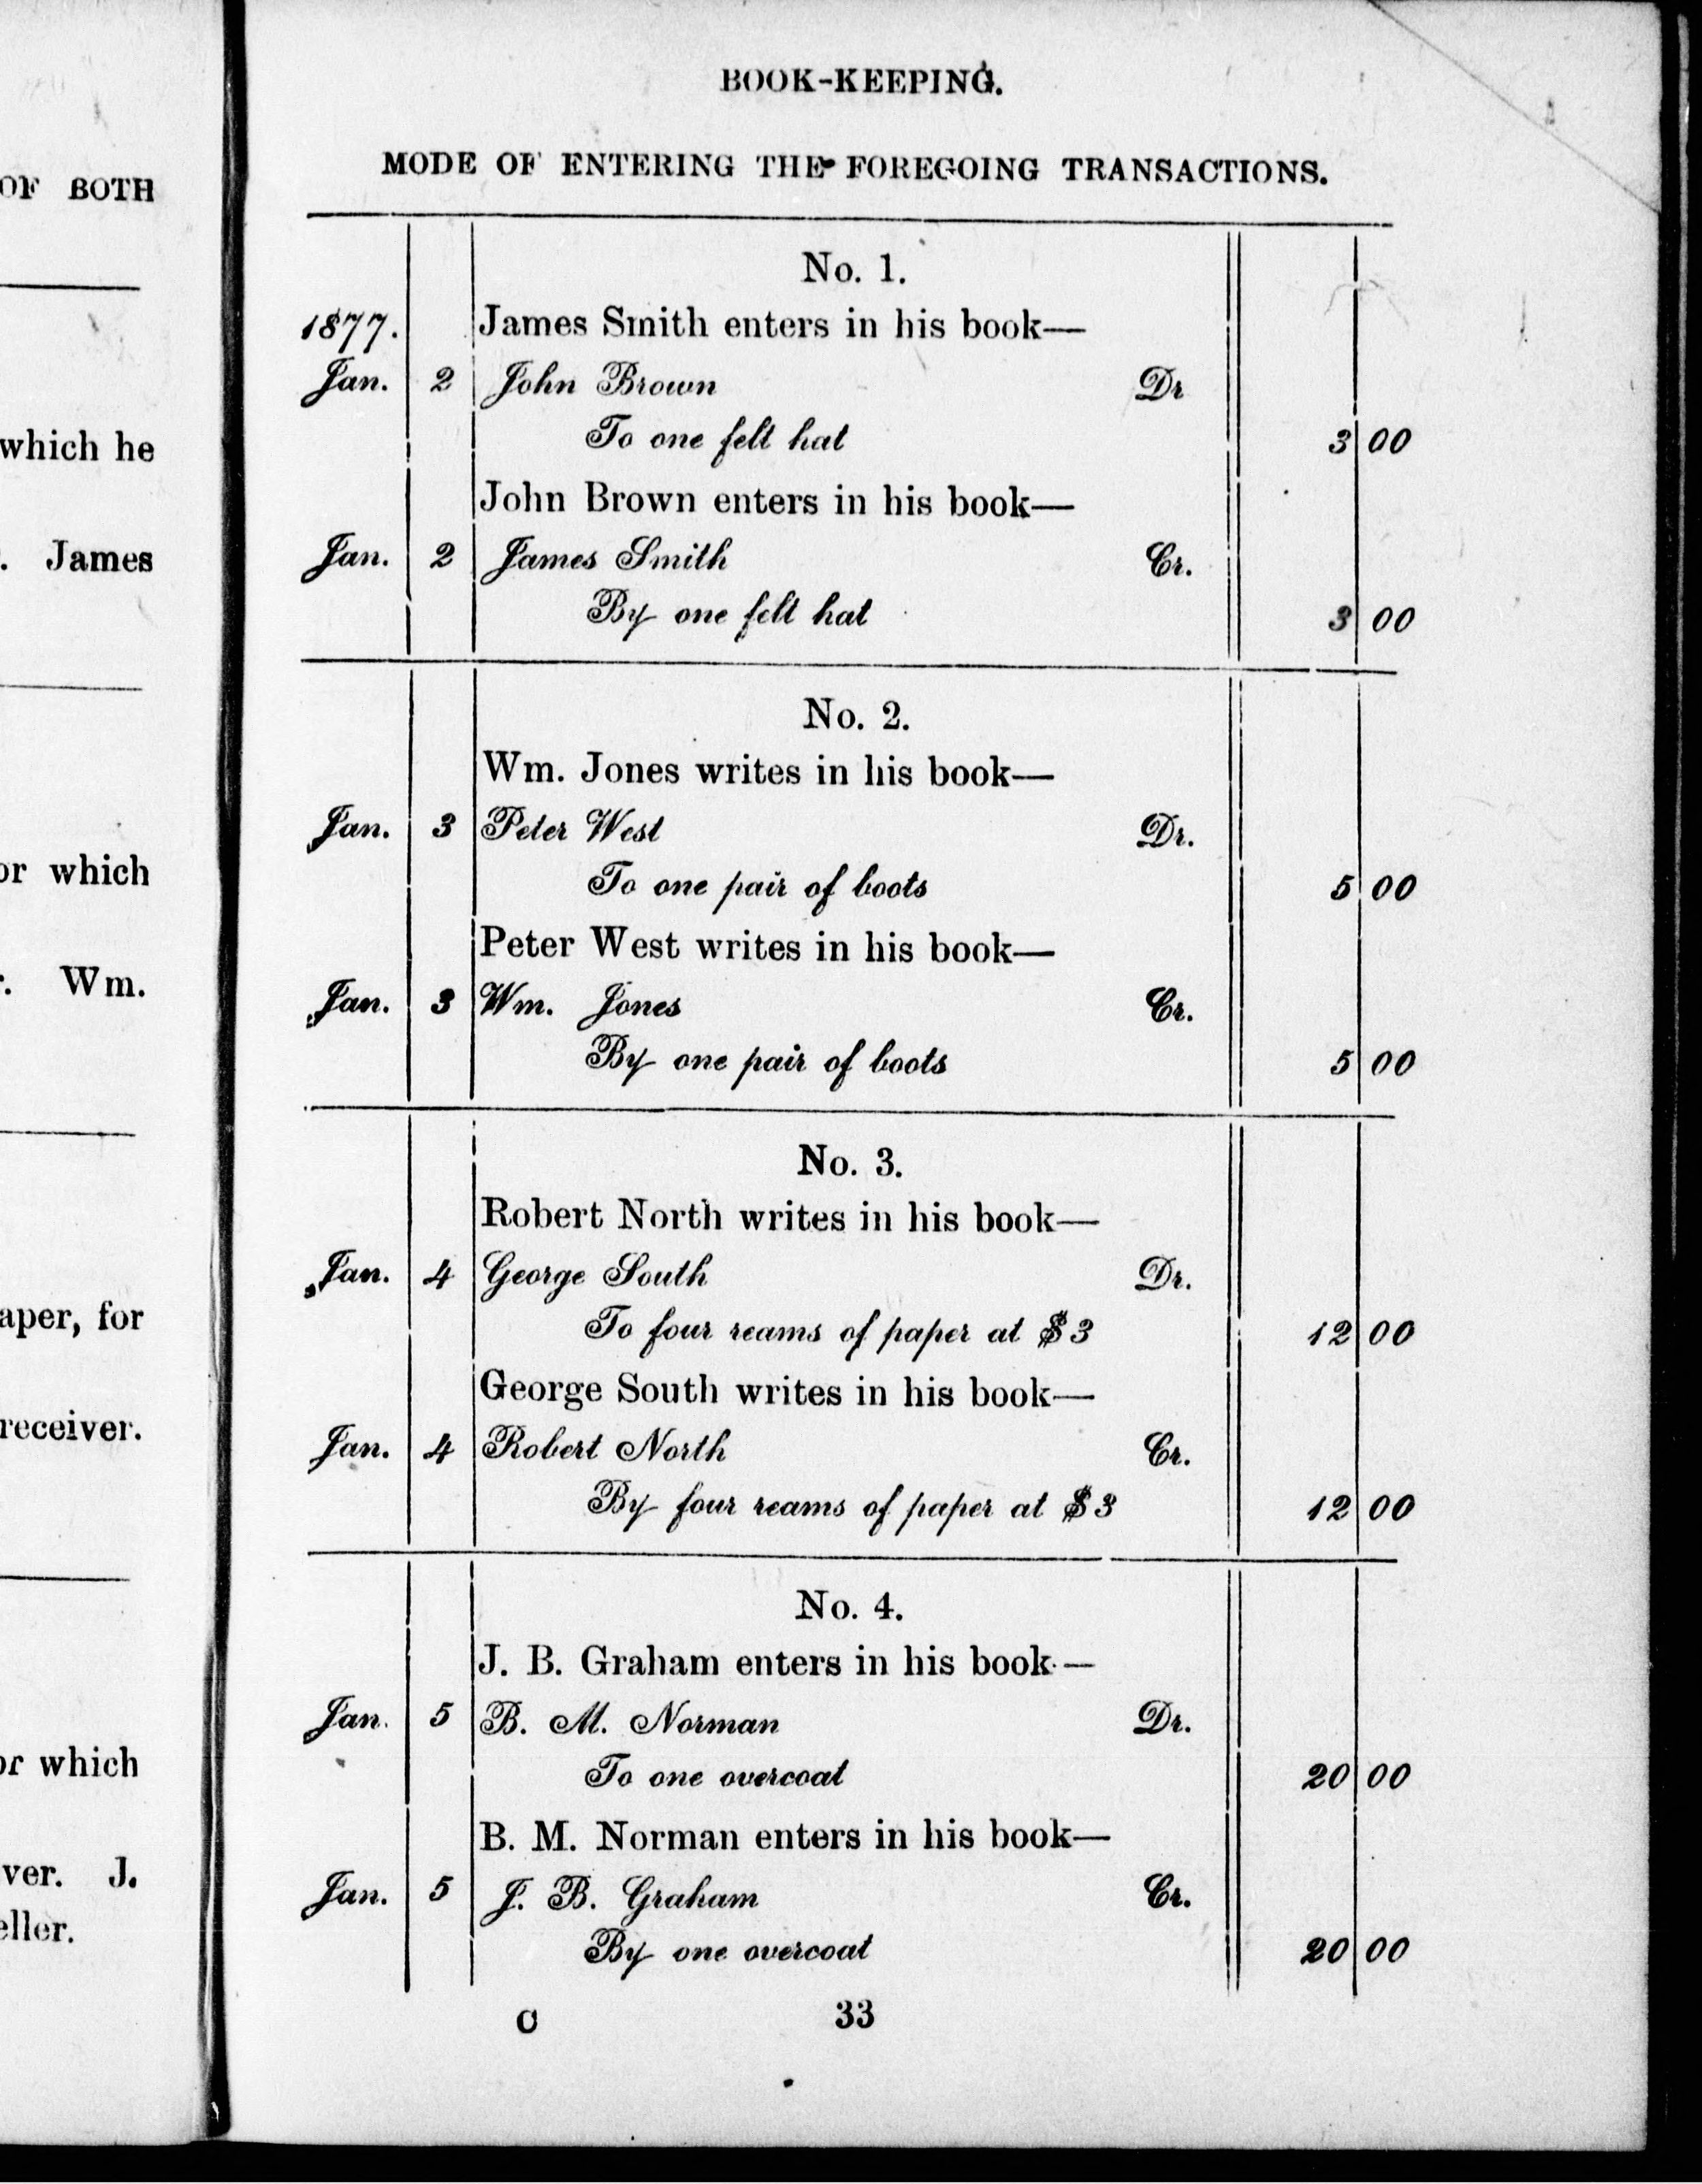 OF BOTH
which he
. James
or which
r. Wm.
aper, for
receiver.
or which
ver. J.
eller.
BOOK-KEEPING.
MODE OF ENTERING THE FOREGOING TRANSACTIONS.
No. 1.
1877. James Smith enters in his book—
Jan. 2 John Brown Dr
To one felt hat 3 00
John Brown enters in his book—
Jan. 2 James Smith Cr.
By one felt hat 3 00
No. 2.
Wm. Jones writes in his book—
Jan. 3 Peter West Dr.
To one pair of boots 5 00
Peter West writes in his book—
Jan. 3 Wm. Jones Cr.
By one pair of boots 5 00
No. 3.
Robert North writes in his book—
Jan. 4 George South Dr.
To four reams of paper at $3 12 00
George South writes in his book—
Jan. 4 Robert North Cr.
By four reams of paper at $3 12 00
No. 4.
J. B. Graham enters in his book—
Jan. 5 B. M. Norman Dr.
To one overcoat 20 00
B. M. Norman enters in his book—
Jan. 5 J. B. Graham Cr.
By one overcoat 20 00
C 33